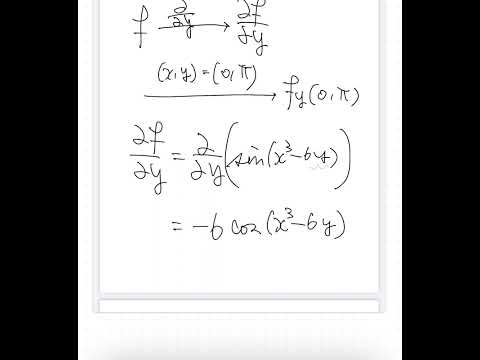 f ∂/∂y → ∂f/∂y
(x,y)=(0,π) → fy(0,π)
∂f/∂y = ∂/∂y (sin(x³−6y))
= −6 cos(x³−6y)